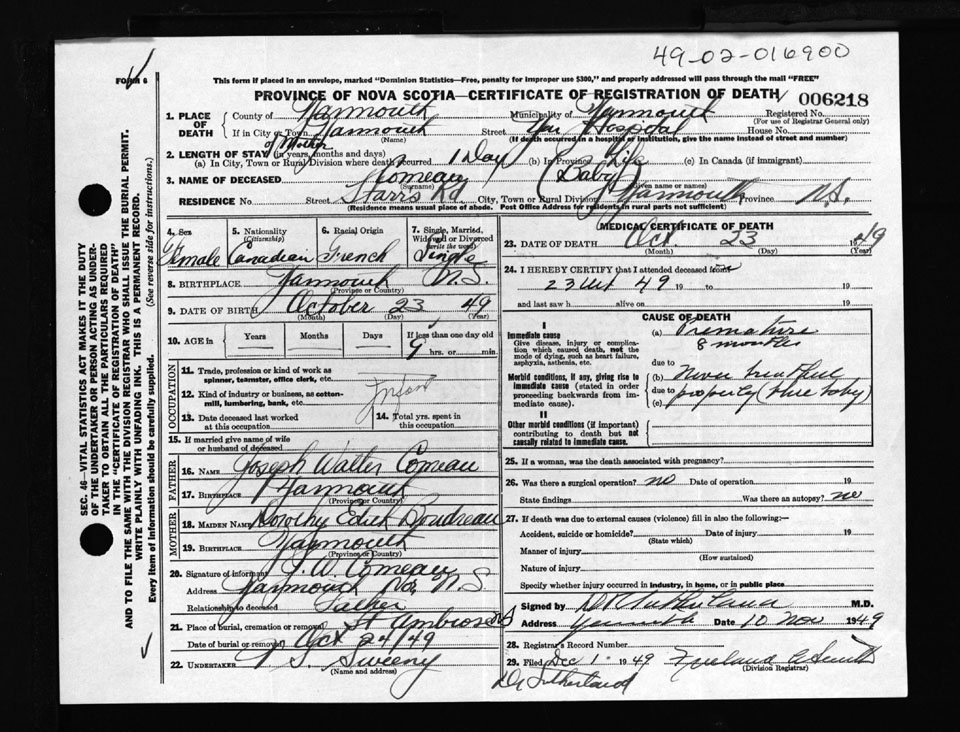 49-02-016900
FORM 6
This form if placed in an envelope, marked "Dominion Statistics—Free, penalty for improper use $300," and properly addressed will pass through the mail "FREE"
PROVINCE OF NOVA SCOTIA—CERTIFICATE OF REGISTRATION OF DEATH
006218
SEC. 46—VITAL STATISTICS ACT MAKES IT THE DUTY
OF THE UNDERTAKER OR PERSON ACTING AS UNDER-
TAKER TO OBTAIN ALL THE PARTICULARS REQUIRED
IN THE "CERTIFICATE OF REGISTRATION OF DEATH"
AND TO FILE THE SAME WITH THE DIVISION REGISTRAR WHO SHALL ISSUE THE BURIAL PERMIT.
WRITE PLAINLY WITH UNFADING INK. THIS IS A PERMANENT RECORD.
Every item of information should be carefully supplied. (See reverse side for instructions.)
1. PLACE OF DEATH
County of Yarmouth Municipality of Yarmouth Registered No.
(For use of Registrar General only)
If in City or Town Yarmouth Street Hospital House No.
(Name) (If death occurred in a hospital or institution, give the name instead of street and number)
of Mother
2. LENGTH OF STAY (in years, months and days)
(a) In City, Town or Rural Division where death occurred 1 Day (b) In Province Life (c) In Canada (if immigrant)
3. NAME OF DECEASED Comeau (Baby)
(Surname) (Given name or names)
RESIDENCE No. Street Starrs Rd. City, Town or Rural Division Yarmouth Province N.S.
(Residence means usual place of abode. Post Office Address for residents in rural parts not sufficient)
4. Sex Female
5. Nationality (Citizenship) Canadian
6. Racial Origin French
7. Single, Married, Widowed or Divorced (write the word) Single
8. BIRTHPLACE Yarmouth N.S.
(Province or Country)
9. DATE OF BIRTH October 23 49
(Month) (Day) (Year)
10. AGE in Years Months Days If less than one day old
9 hrs. or min.
OCCUPATION
11. Trade, profession or kind of work as spinner, teamster, office clerk, etc.
12. Kind of industry or business, as cotton-mill, lumbering, bank, etc.
Infant
13. Date deceased last worked at this occupation
14. Total yrs. spent in this occupation
15. If married give name of wife or husband of deceased
FATHER
16. NAME Joseph Walter Comeau
17. BIRTHPLACE Yarmouth
(Province or Country)
MOTHER
18. MAIDEN NAME Dorothy Edith Boudreau
19. BIRTHPLACE Yarmouth
(Province or Country)
20. Signature of informant J. W. Comeau
Address Yarmouth N.S.
Relationship to deceased Father
21. Place of burial, cremation or removal St Ambrose N.S
Date of burial or removal Oct 24/49
22. UNDERTAKER Sweeny
(Name and address)
MEDICAL CERTIFICATE OF DEATH
23. DATE OF DEATH Oct. 23 1949
(Month) (Day) (Year)
24. I HEREBY CERTIFY that I attended deceased from
23 Oct 49 19 to 19
and last saw h alive on 19
CAUSE OF DEATH
I
Immediate cause
Give disease, injury or complication which caused death, not the mode of dying, such as heart failure, asphyxia, asthenia, etc.
(a) Premature
8 months
due to
Morbid conditions, if any, giving rise to immediate cause (stated in order proceeding backwards from immediate cause).
(b) Never breathed
due to
(c) properly (blue baby)
II
Other morbid conditions (if important) contributing to death but not causally related to immediate cause.
25. If a woman, was the death associated with pregnancy?
26. Was there a surgical operation? no Date of operation 19
State findings Was there an autopsy? no
27. If death was due to external causes (violence) fill in also the following:—
Accident, suicide or homicide? Date of injury 19
(State which)
Manner of injury
(How sustained)
Nature of injury
Specify whether injury occurred in industry, in home, or in public place
Signed by Sutherland M.D.
Address Yarmouth Date 10 Nov 1949
28. Registrar's Record Number
29. Filed Dec 1 1949 Smith
(Division Registrar)
Dr Sutherland